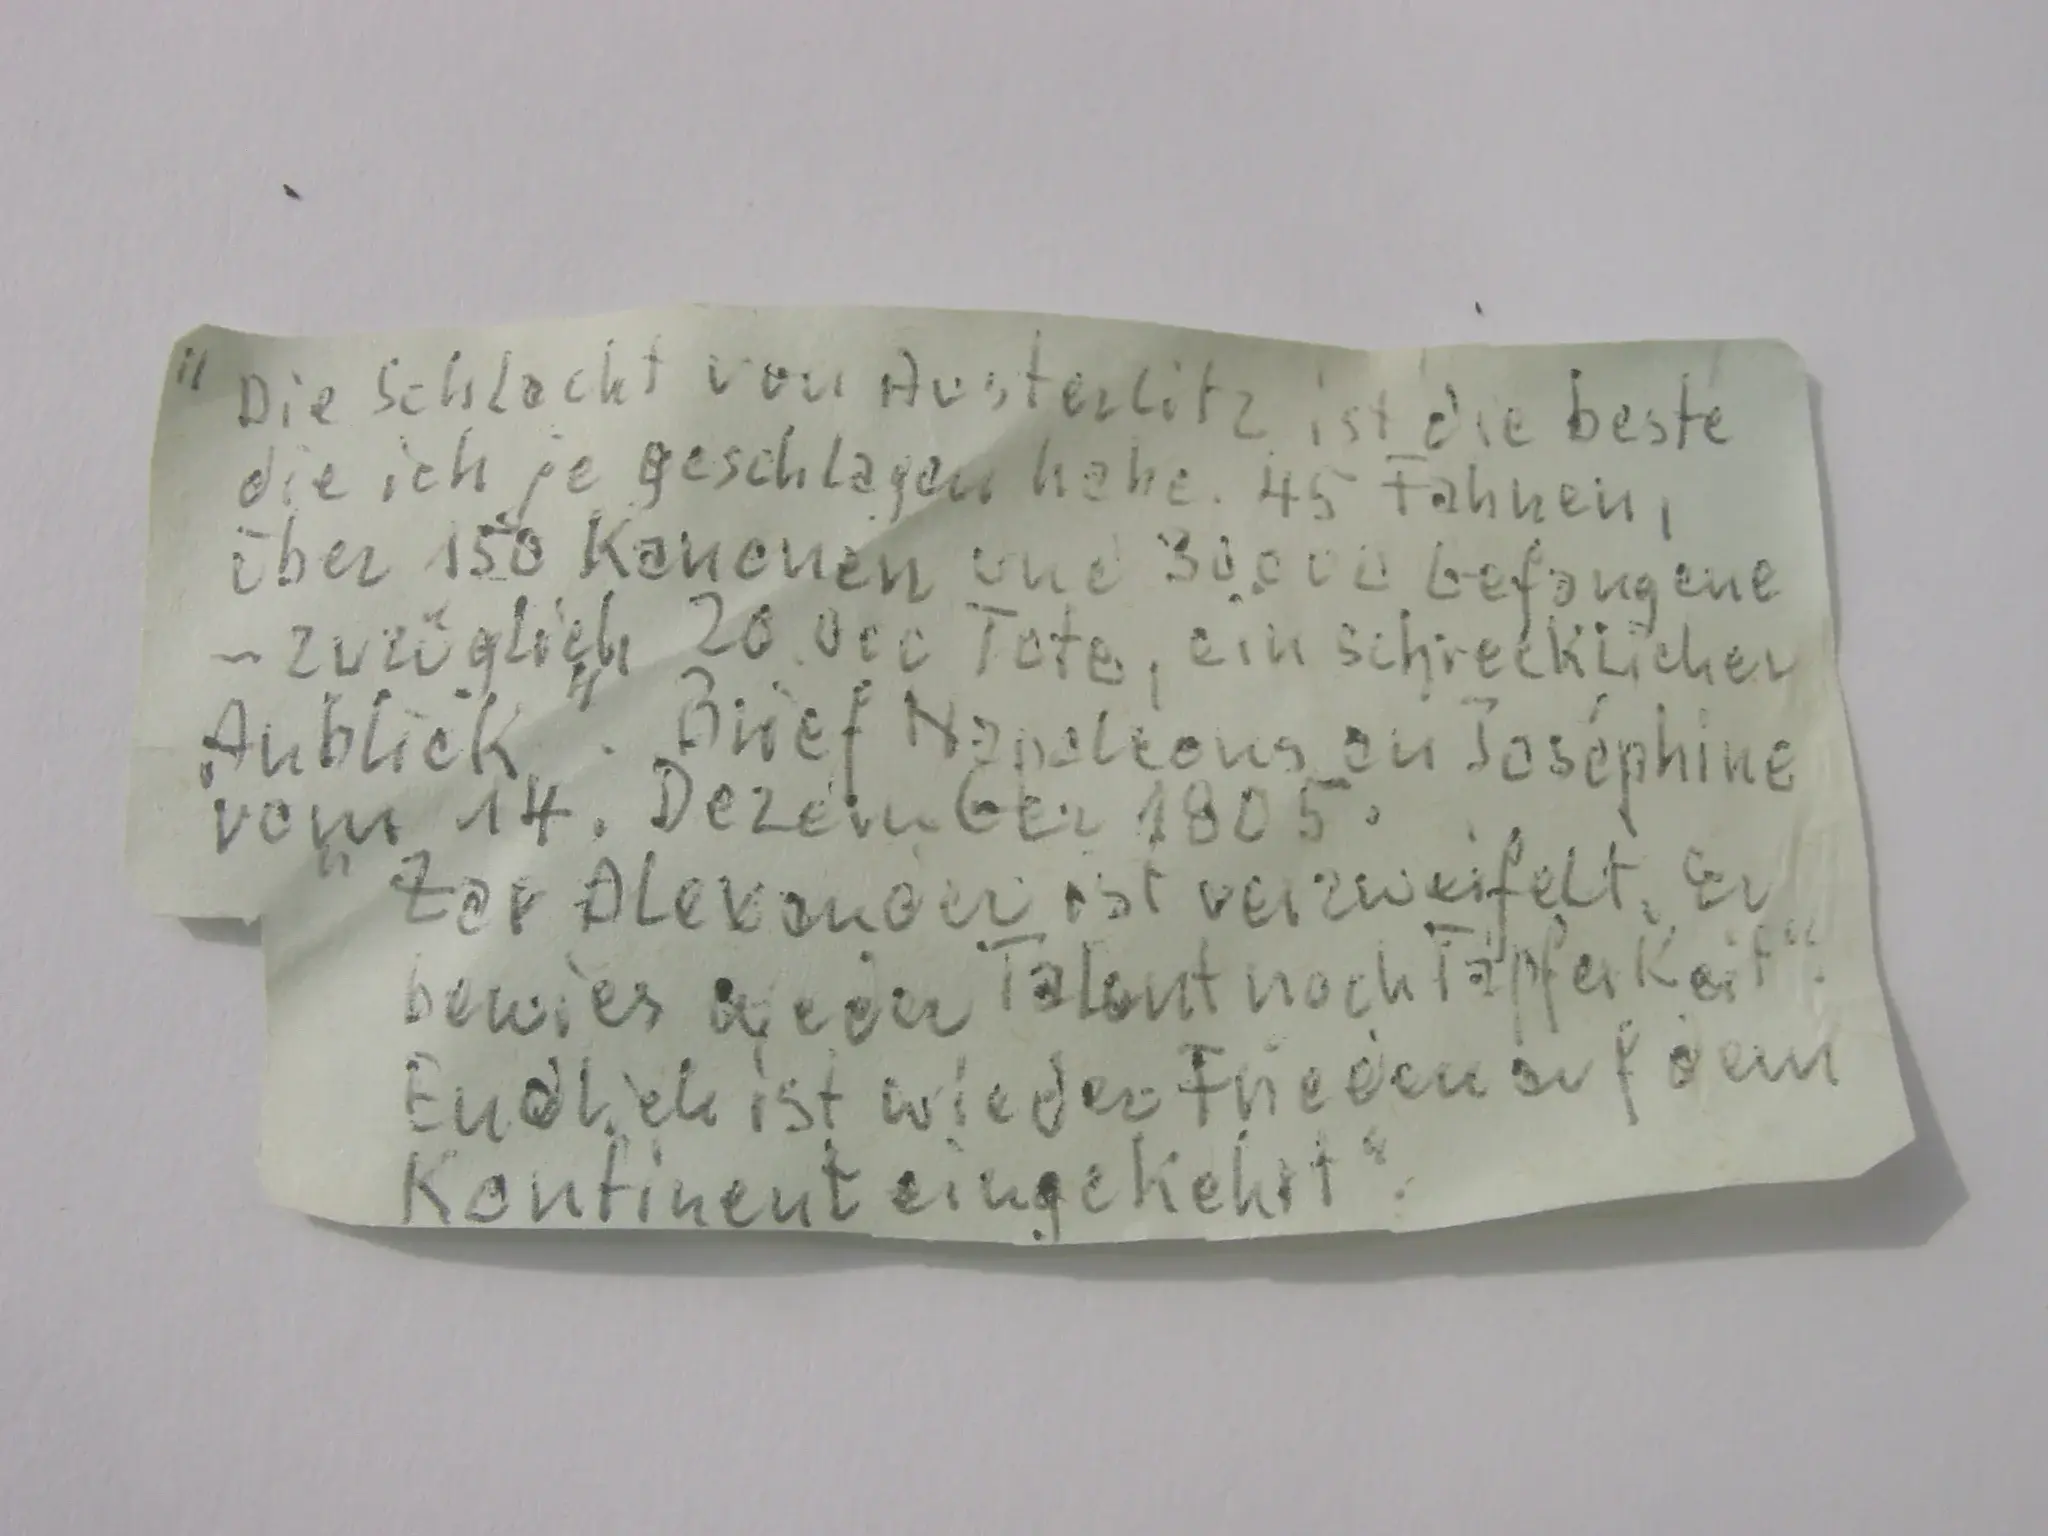 "Die Schlacht von Austerlitz ist die beste
die ich je geschlagen habe. 45 Fahnen,
über 150 Kanonen und 30.000 Gefangene
- zuzüglich 20.000 Tote, ein schrecklicher
Anblick". Brief Napoleons an Joséphine
vom 14. Dezember 1805.
"Zar Alexander ist verzweifelt. Er
bewies weder Talent noch Tapferkeit".
Endlich ist wieder Frieden auf dem
Kontinent eingekehrt".